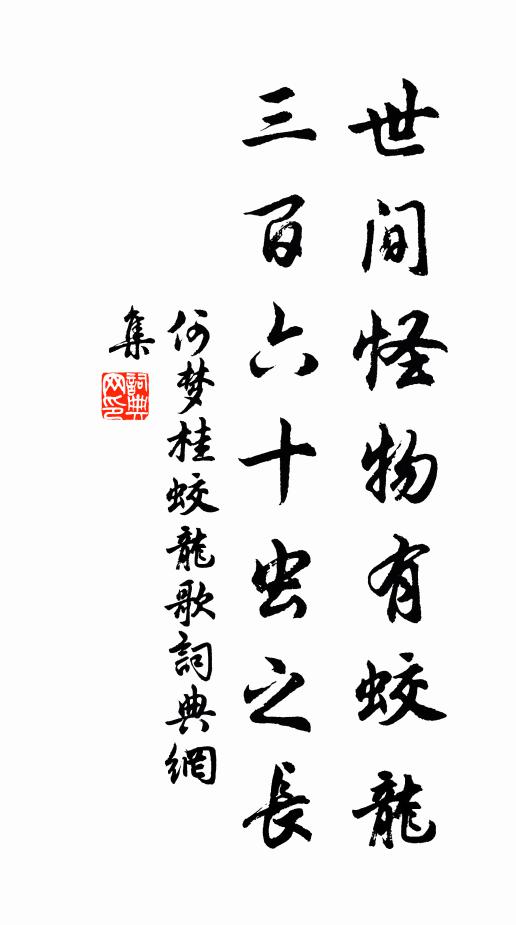 世间怪物有蛟龍
三百六十虫之長
何梦桂蛟龍歌詞典網
集
詞典
网印